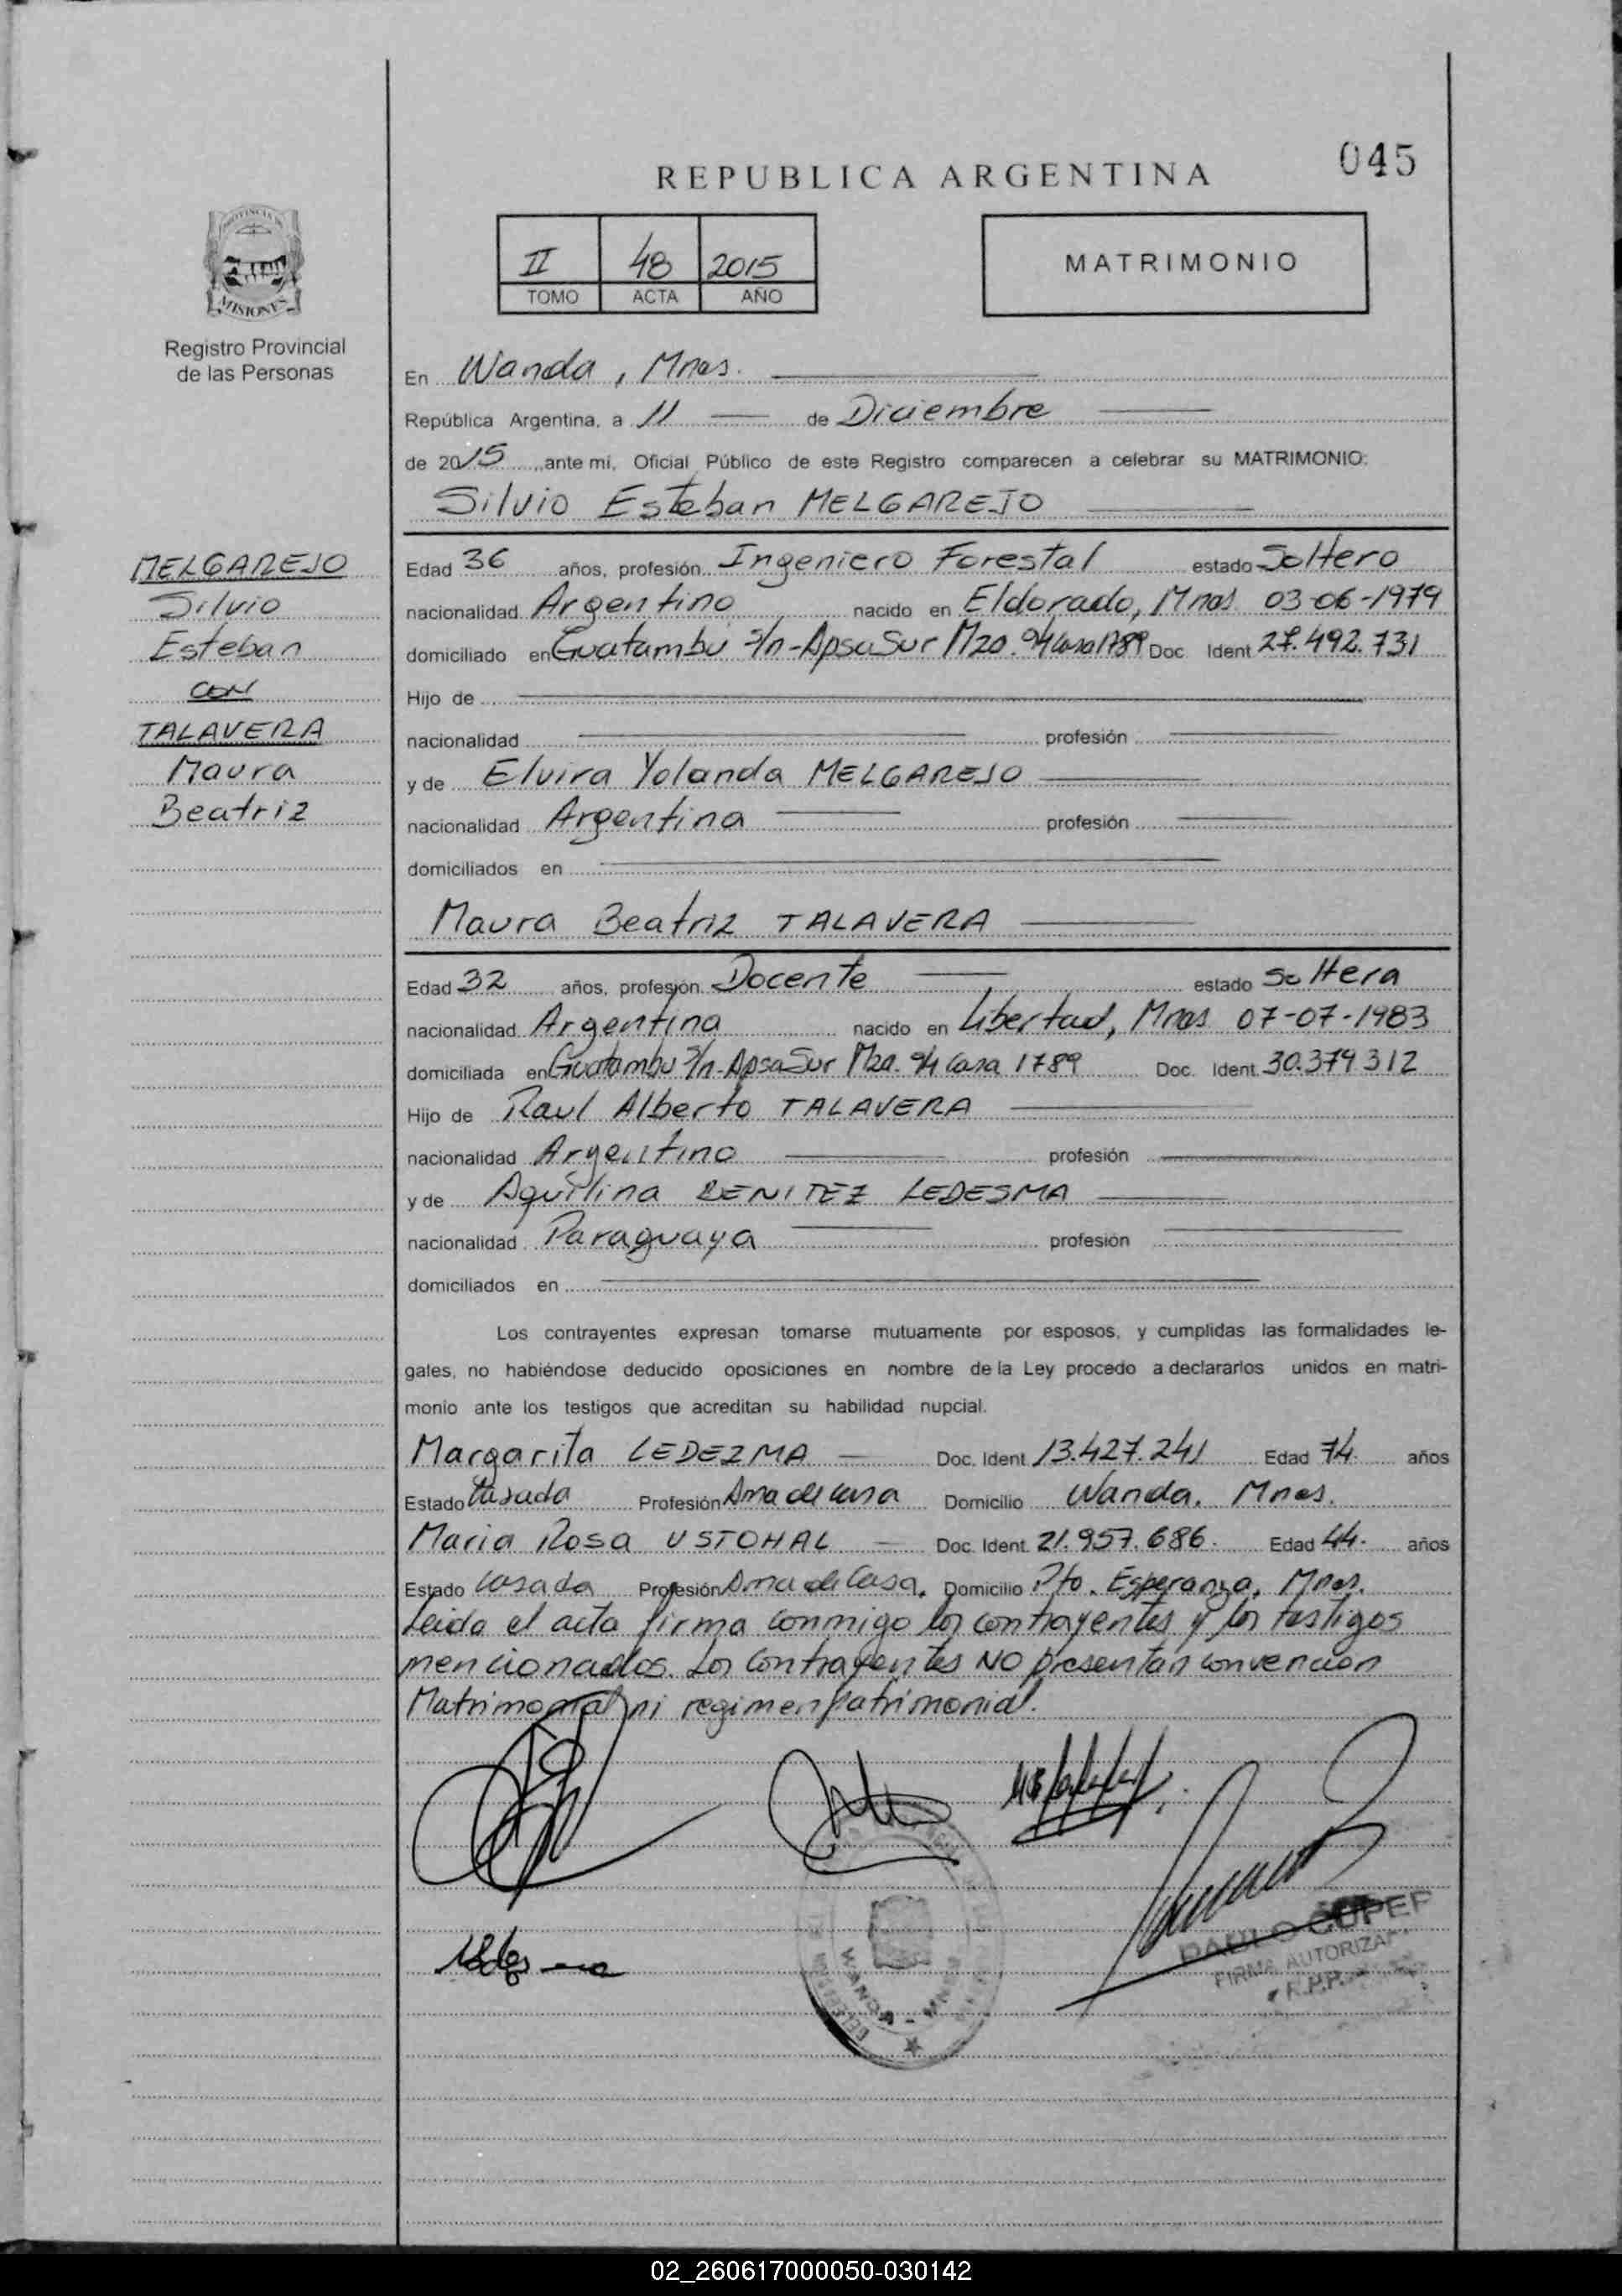 045
REPUBLICA ARGENTINA
II 48 2015
TOMO ACTA AÑO
MATRIMONIO
PROVINCIA DE
MISIONES
Registro Provincial
de las Personas
En Wanda, Mnes.
República Argentina, a 11 de Diciembre
de 2015, ante mi, Oficial Público de este Registro comparecen a celebrar su MATRIMONIO:
Silvio Esteban MELGAREJO
MELGAREJO
Silvio
Esteban
CON
TALAVERA
Maura
Beatriz
Edad 36 años, profesión Ingeniero Forestal estado Soltero
nacionalidad Argentino nacido en Eldorado, Mnes 03-06-1979
domiciliado en Guatambu s/n-ApsaSur Mza. 94 Casa 1789 Doc. Ident 27.492.731
Hijo de
nacionalidad profesión
y de Elvira Yolanda MELGAREJO
nacionalidad Argentina profesión
domiciliados en
Maura Beatriz TALAVERA
Edad 32 años, profesión Docente estado Soltera
nacionalidad Argentina nacido en Libertad, Mnes 07-07-1983
domiciliada en Guatambu s/n-ApsaSur Mza. 94 Casa 1789 Doc. Ident. 30.379.312
Hijo de Raul Alberto TALAVERA
nacionalidad Argentino profesión
y de Aquilina BENITEZ LEDESMA
nacionalidad Paraguaya profesión
domiciliados en
Los contrayentes expresan tomarse mutuamente por esposos, y cumplidas las formalidades le-
gales, no habiéndose deducido oposiciones en nombre de la Ley procedo a declararlos unidos en matri-
monio ante los testigos que acreditan su habilidad nupcial.
Margarita LEDEZMA Doc. Ident 13.427.241 Edad 74. años
Estado Casada Profesión Ama de casa Domicilio Wanda, Mnes.
Maria Rosa USTOHAL Doc. Ident. 21.957.686. Edad 44. años
Estado Casada Profesión Ama de Casa. Domicilio Pto. Esperanza, Mnes.
Leida el acta firma conmigo los contrayentes y los testigos
mencionados. Los Contrayentes NO presentan convencion
Matrimonial ni regimen patrimonial.
WANDA - MNES
PABLO CUPEP
FIRMA AUTORIZAD
R.P.P.
02_260617000050-030142